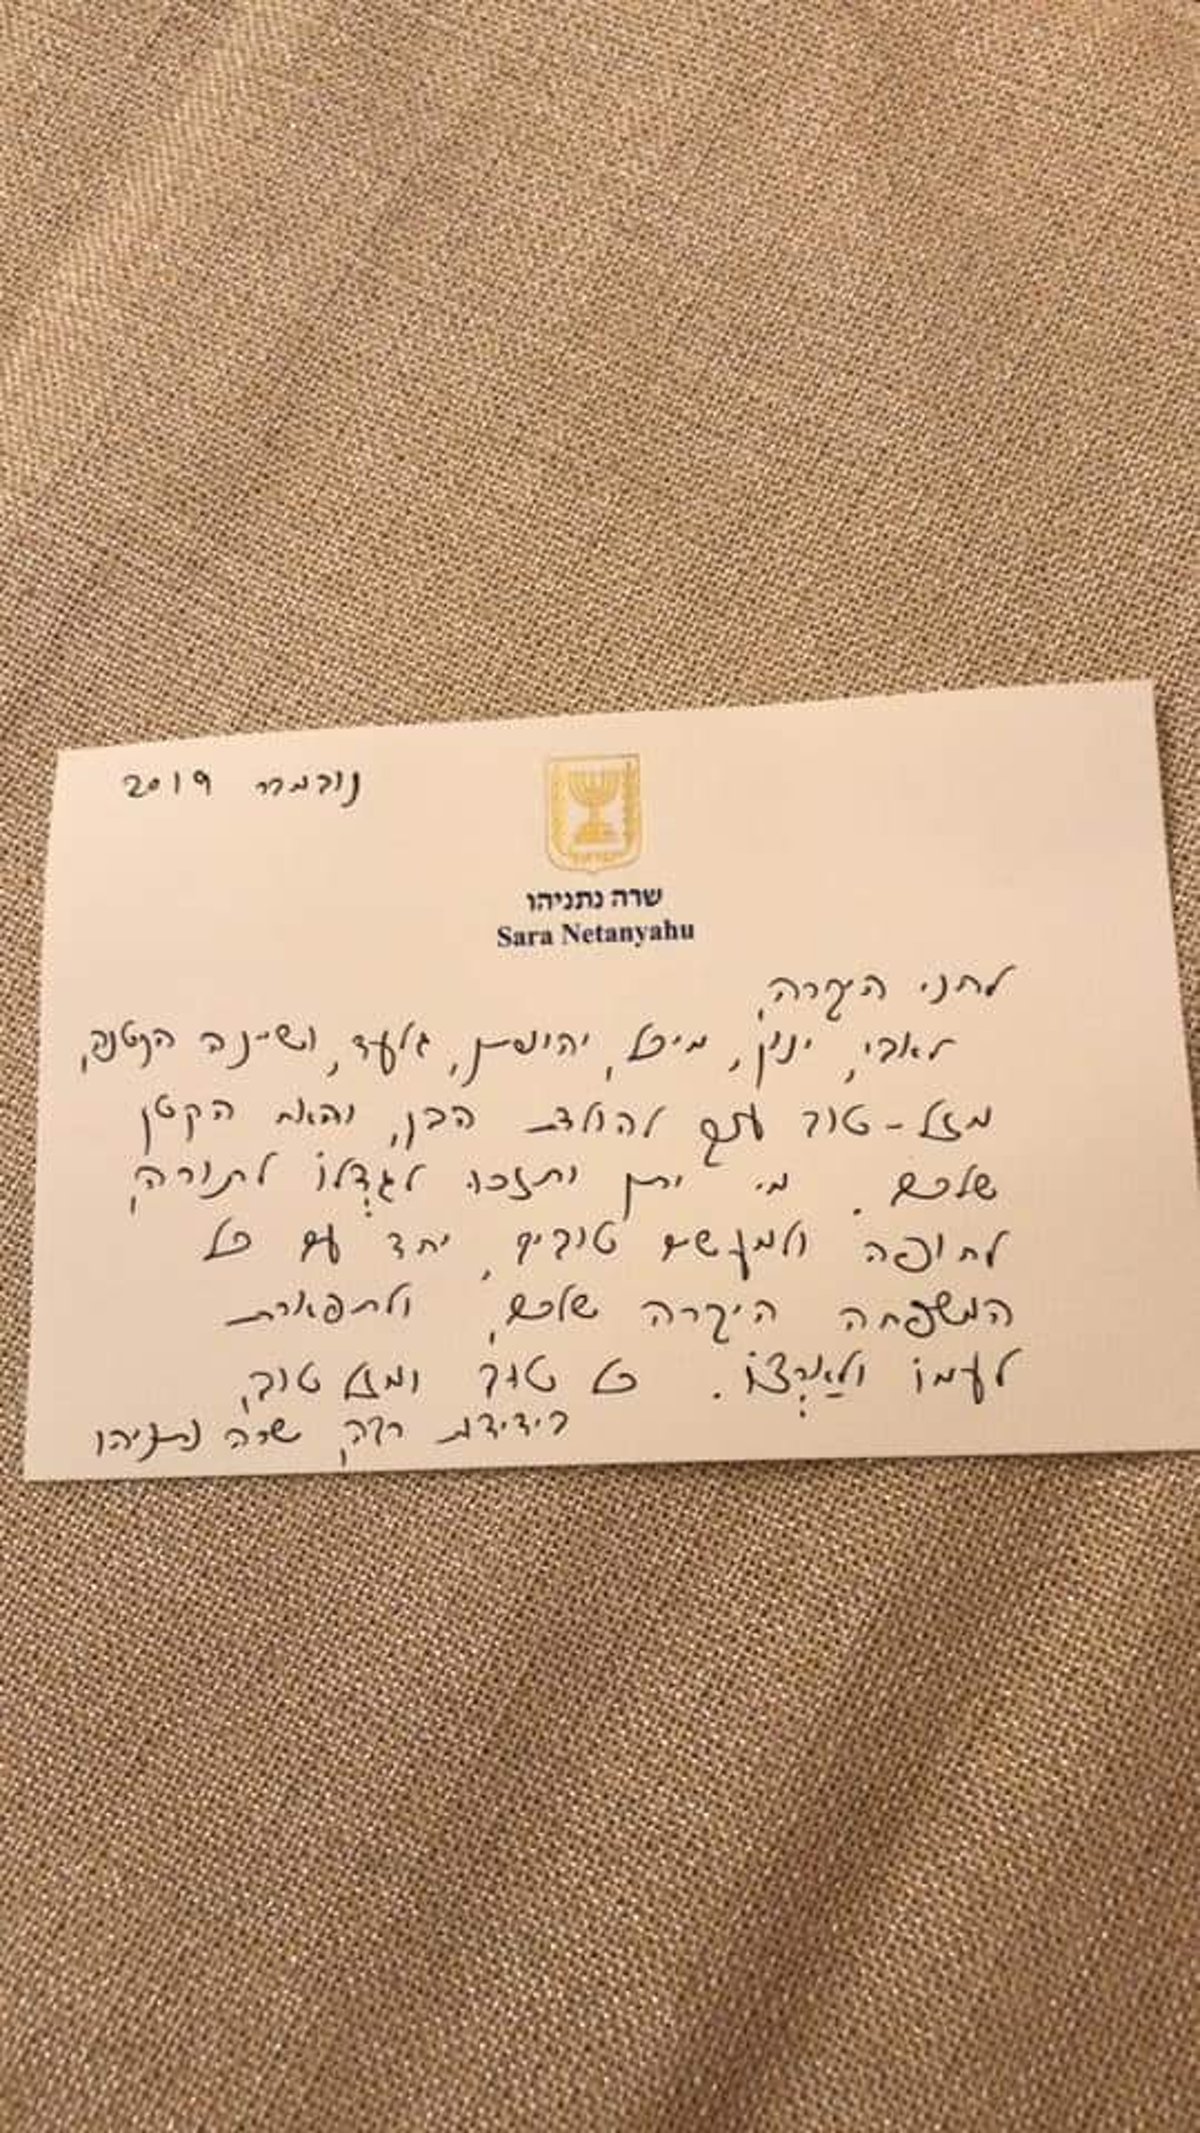 נובמבר 2019
שרה נתניהו
Sara Netanyahu
לחני היקרה,
לאבי, ינון, מיכל, יהונתן, גלעד, ושיינה הקטנה,
מזל-טוב ענק להולדת הבן, והאח הקטן
שלכם. מי יתן ותזכו לגדְלוֹ לתורה,
לחופה ולמעשים טובים, יחד עם כל
המשפחה היקרה שלכם, ולתפארת
לעמוֹ ולאַרְצוֹ. כל טוב ומזל טוב,
בידידות רבה, שרה נתניהו